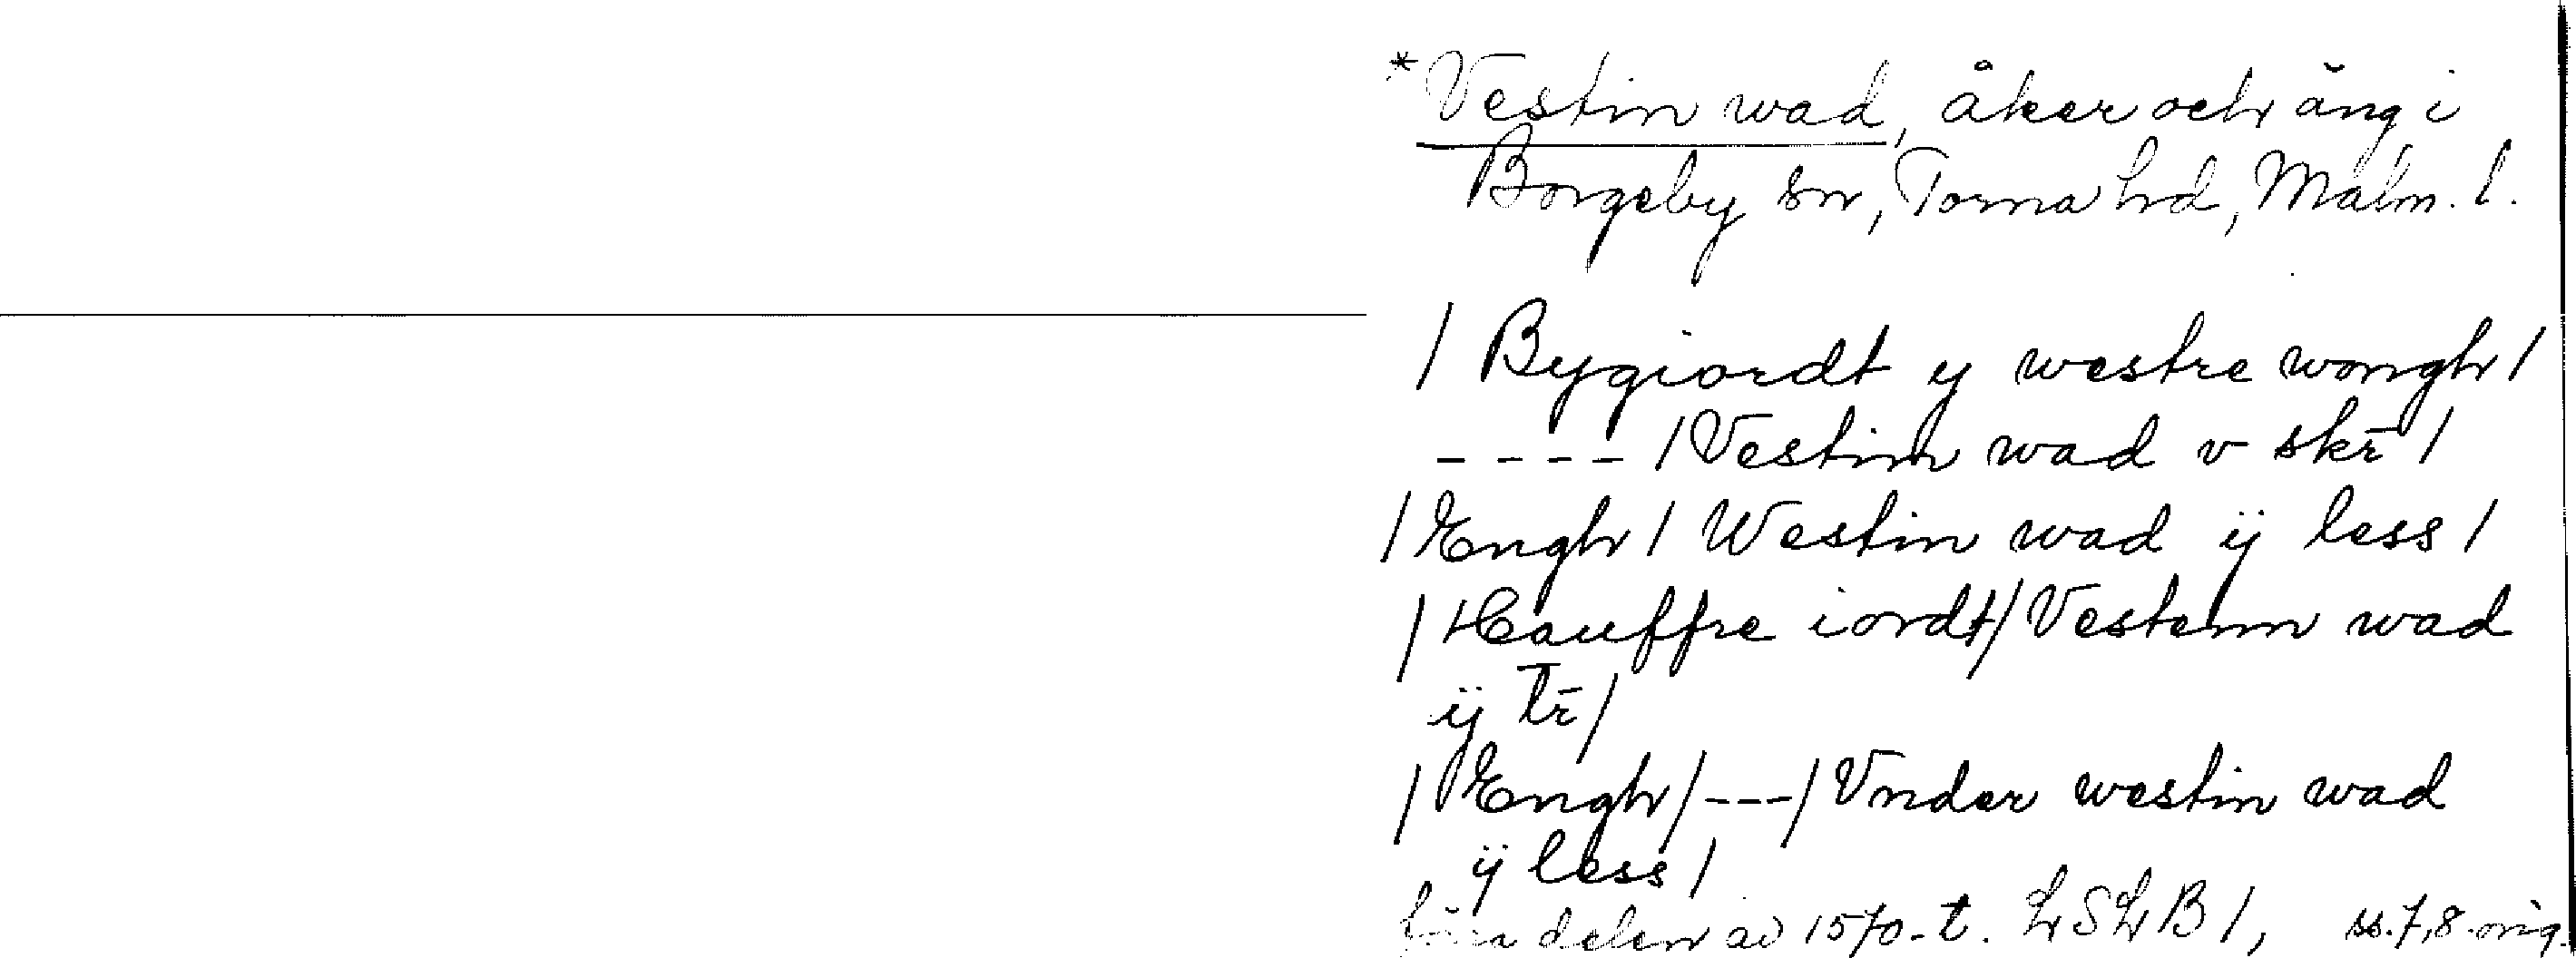 *Vestin wad, åker och äng i
Borgeby sn, Torna hd, Malm. l.
/ Bygiordt y westre wongh /
- - - - / Vestinn wad v skr̄ /
/ Engh / Westin wad ij less /
/ Hauffre iordt / Vestenn wad
ij tr̄ /
/ Engh / --- / Vnder westin wad
ij less /
förra delen av 1570-t. LSLB 1, ss. 7, 8. orig.